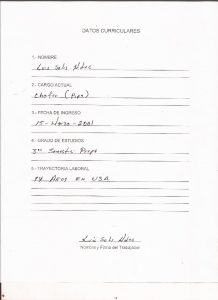 DATOS CURRICULARES
1.- NOMBRE
Luis Solis
2.- CARGO ACTUAL
Chofer (Pipa)
3.- FECHA DE INGRESO
15 - Marzo - 2001
4.- GRADO DE ESTUDIOS
3er Semestre Prepa
5.- TRAYECTORIA LABORAL
14 Años EN USA
Luis Solis
Nombre y Firma del Trabajador